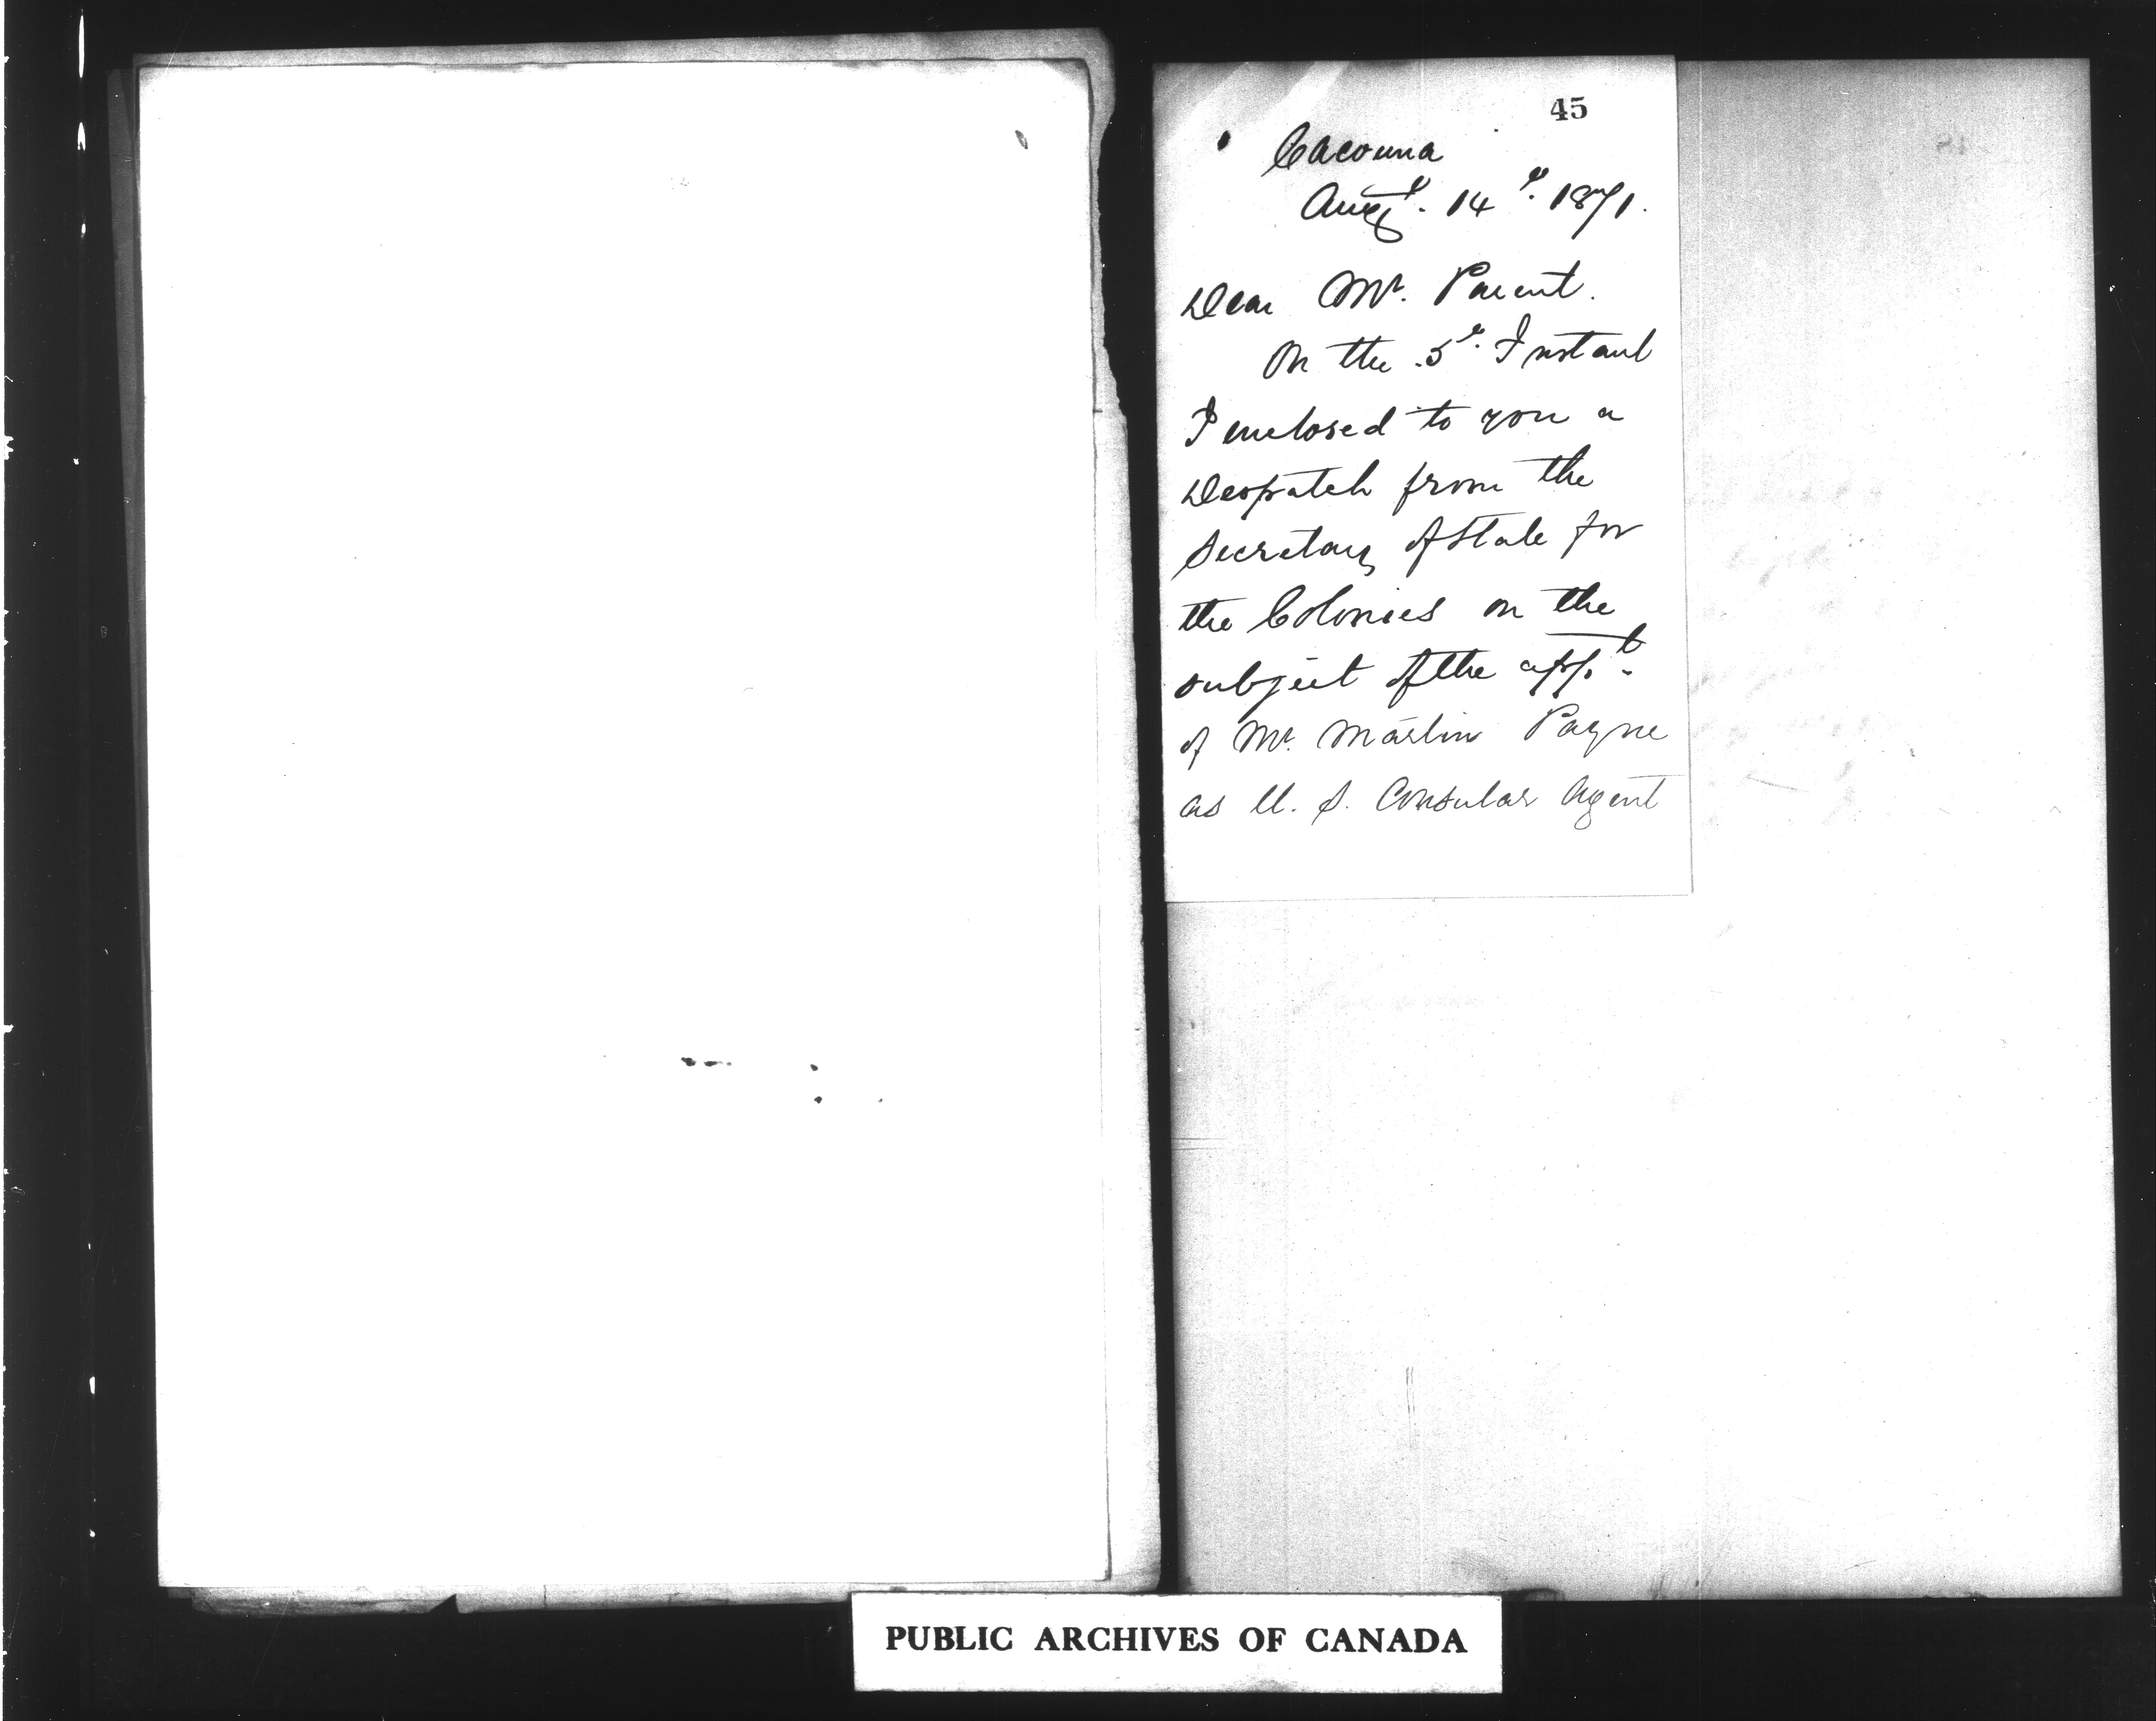 45
Cacouna
Augt. 14th. 1871.
Dear Mr. Parent.
On the 5th. Instant
I enclosed to you a
Despatch from the
Secretary of State for
the Colonies on the
subject of the appt.
of Mr. Martin Payne
as U. S. Consular Agent
PUBLIC ARCHIVES OF CANADA